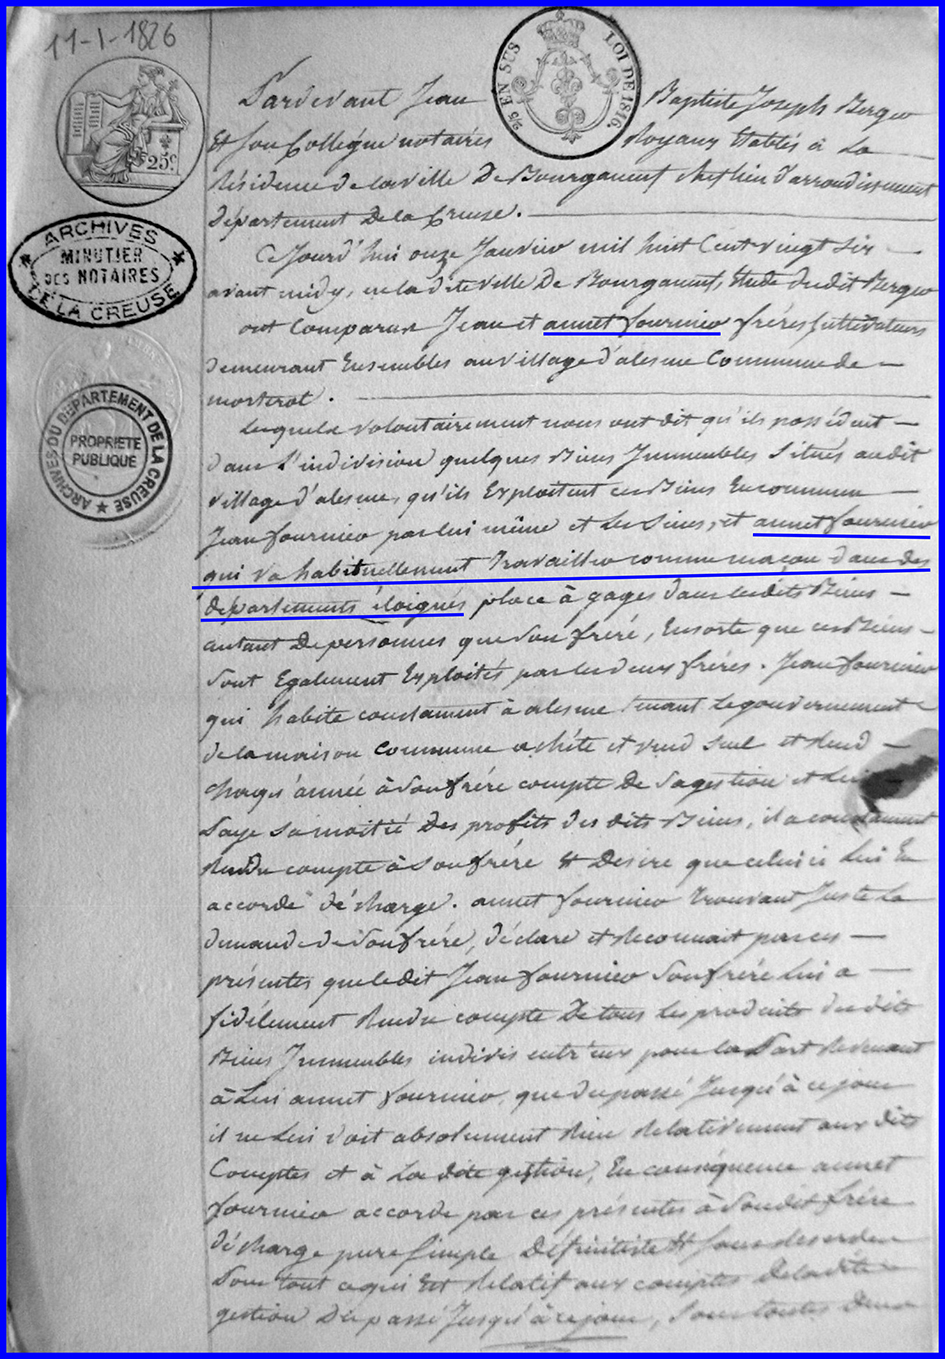 11-1-1826
5/5 EN SUS LOI DE 1816.
25c.
ARCHIVES
MINUTIER
DES NOTAIRES
DE LA CREUSE
ARCHIVES DU DEPARTEMENT DE LA CREUSE
PROPRIETE
PUBLIQUE
Pardevant Jean Baptiste Joseph Berger
Et son Collégue notaires Royaux Etablis à La
Résidence de la ville De Bourganeuf chef lieu d'arrondissement
département De la Creuse.
Cejourd'hui onze Janvier mil huit Cent vingt six
avant midy, en la dite ville De Bourganeuf, Etude du dit Berger
ont Comparus Jean et annet fournier fréres Cultivateurs
demeurant Ensembles au village d'alesme Commune de
morterol.
Lesquels volontairement nous ont dit qu'ils possédent
dans L'indivision quelques Biens Immeubles Situés audit
village d'alesme, qu'ils Exploitent ces Biens En commun
Jean fournier par lui même et Les Siens, et annet fournier
qui va habituellement travailler comme maçon dans des
départements éloignés place à gages dans lesdits Biens
autant De personnes que Son frére, Ensorte que ces Biens
Sont Egalement Exploités par les deux fréres. Jean fournier
qui habite constament à alesme tenant Le gouvernement
de la maison Commune achéte et vend Seul et Rend
chaque année à Son frére compte De Sa gestion et Lui
Paye Sa moitié Des profits des dits Biens, il a constament
Rendu compte à Son frére Et Desire que celui ci Lui En
accorde décharge. annet fournier trouvant Juste La
demande de Son frére, déclare et Reconnait par ces
présentes que ledit Jean fournier Son frére Lui a
fidélement Rendu compte De tous Les produits des dits
Biens Immeubles indivis entr'eux pour La Part Revenant
à Lui annet fournier, que du passé Jusqu'à ce jour
il ne Lui doit absolument Rien Relativement aux dits
Comptes et à La dite gestion, En conséquence annet
fournier accorde par ces présentes à Son dit frére
décharge pure Simple Définitive Et Sans
Pour tout ce qui Est Relatif aux comptes De la dite
gestion Du passé Jusqu'à ce jour, Sous toutes